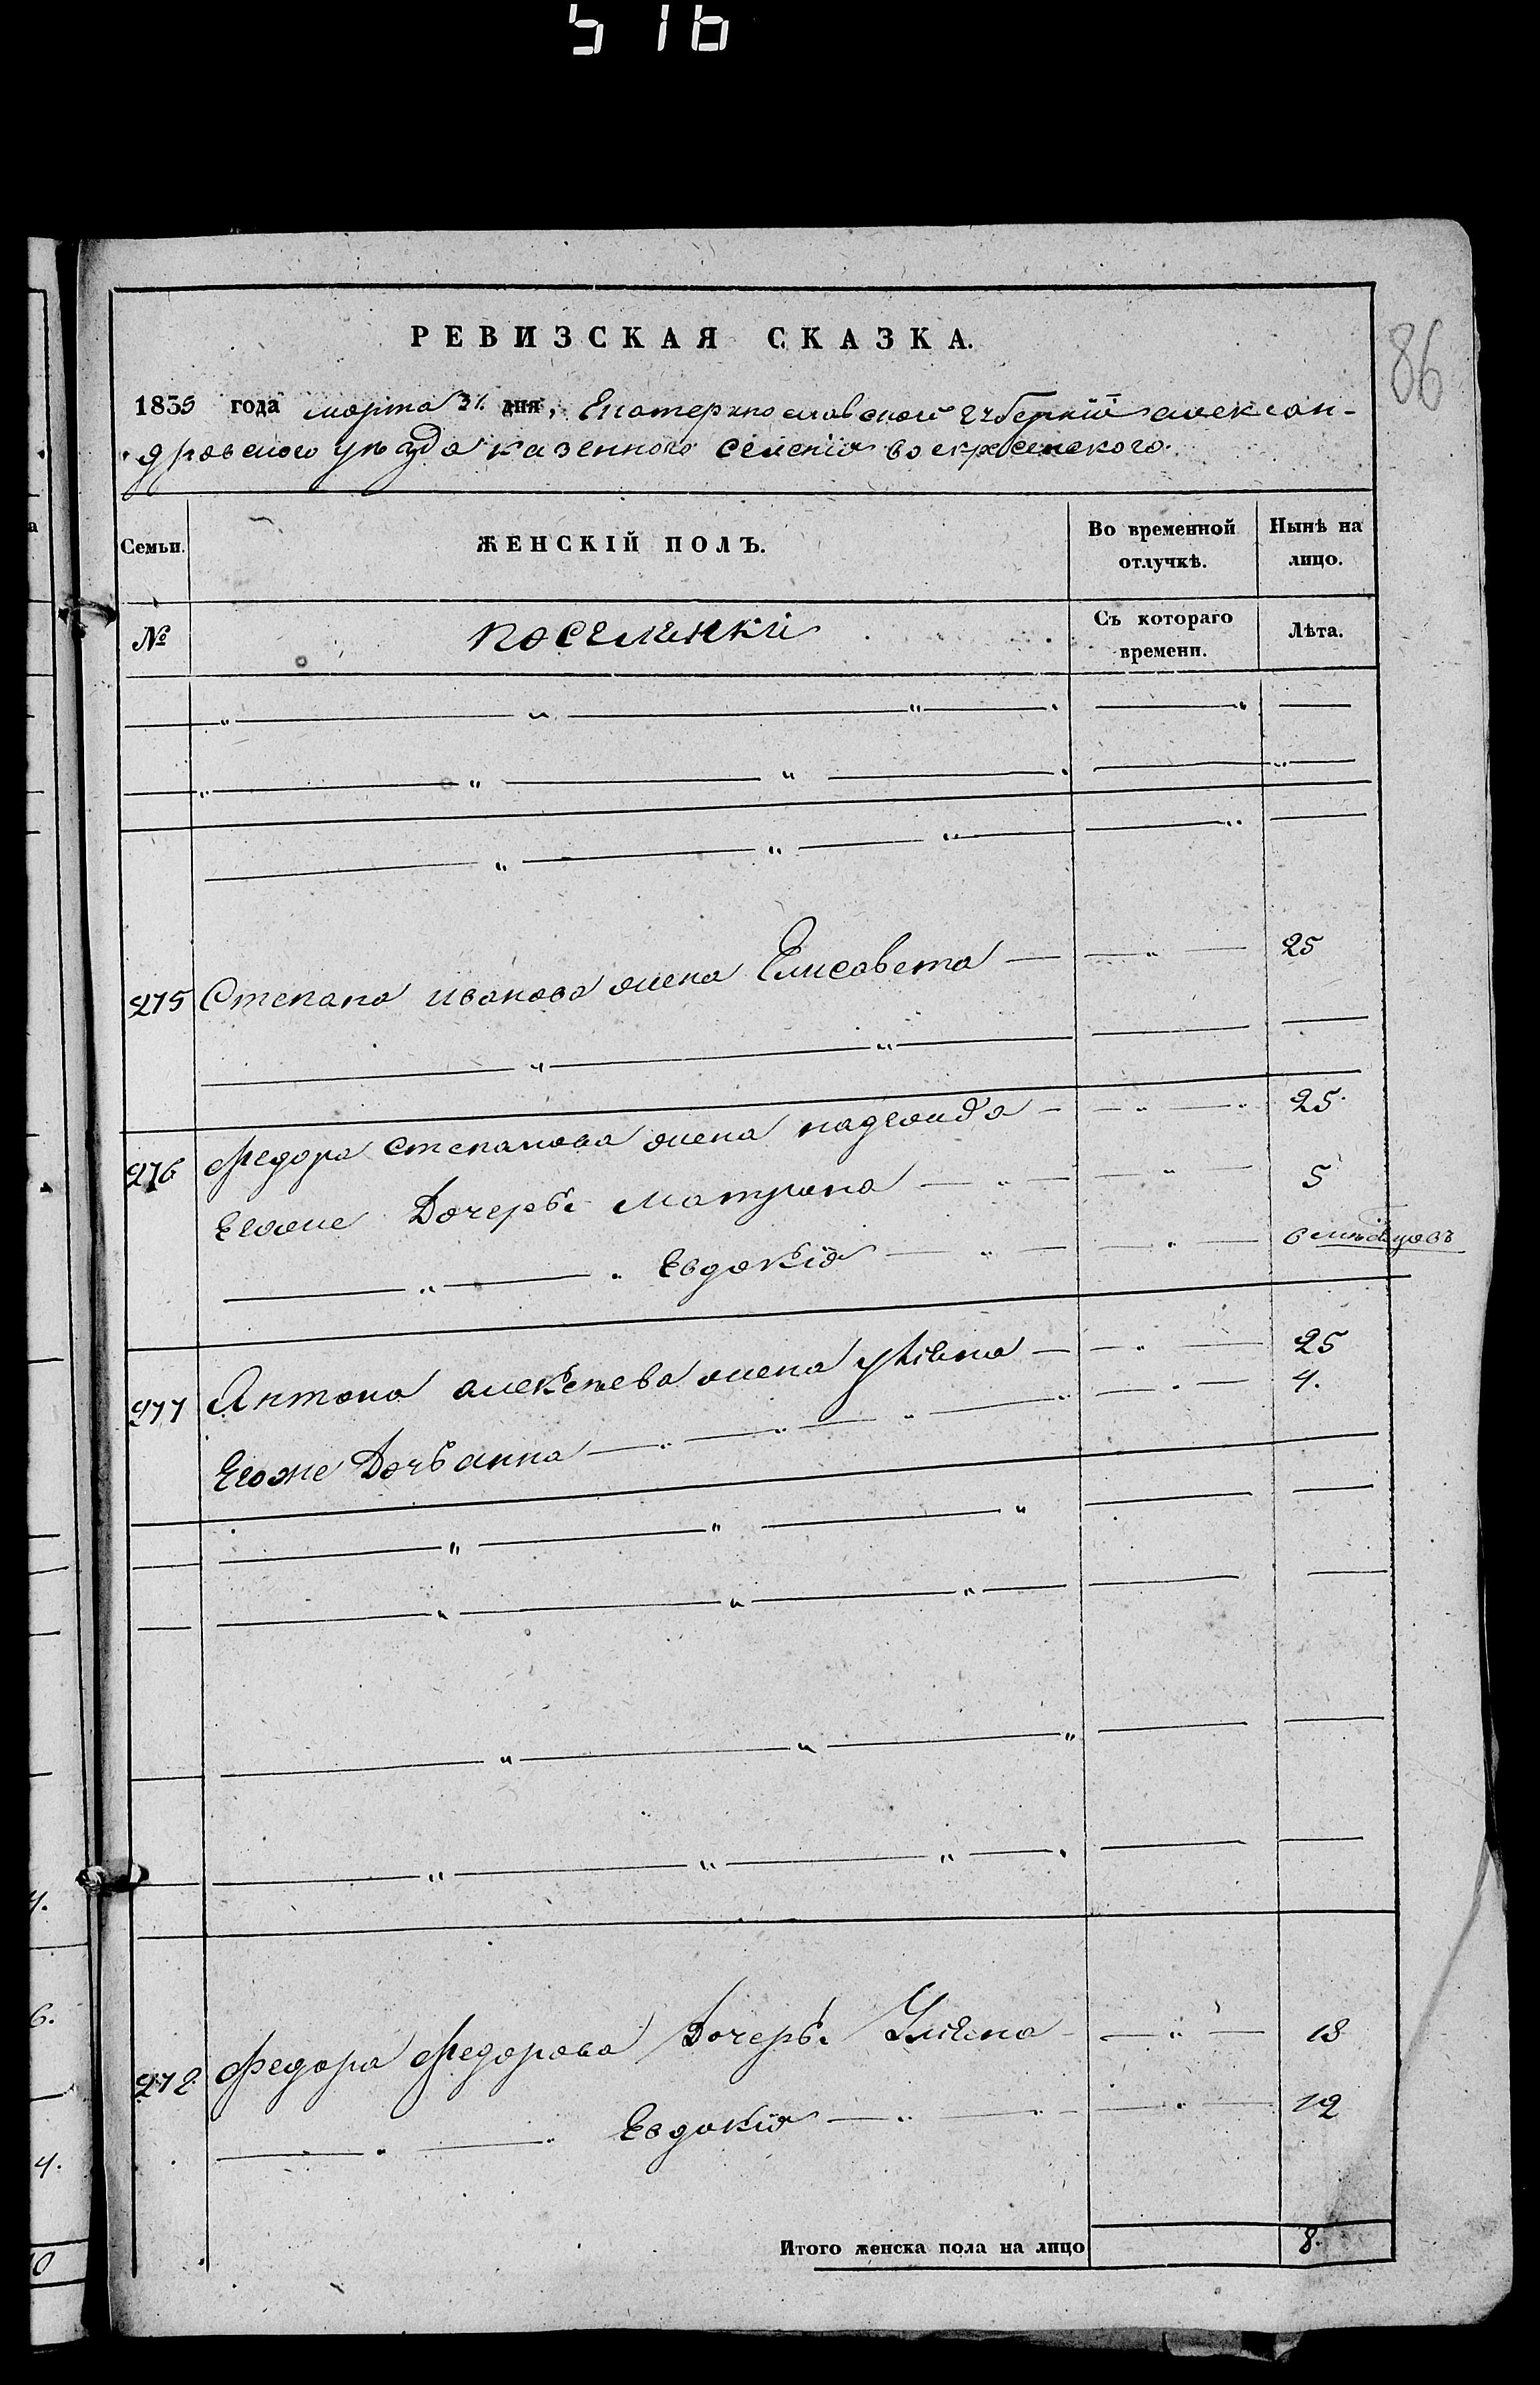 516
86
РЕВИЗСКАЯ СКАЗКА.
1835 года марта 31. дня, Екатеринославской губернiи алексан-
дровского уѣзда казенного селенiя воскресенского.
Семьи. ЖЕНСКІЙ ПОЛЪ. Во временной отлучкѣ. Нынѣ на лицо.
№ поселянки Съ котораго времени. Лѣта.
275 Степана иванова жена Елисавета — — „ — 25
276 Федора степанова жена надежида — — „ — 25.
Егоже Дочерь: Матрона — „ — — „ — 5
— „ — „ Евдокiя — „ — — „ — 6 мѣсяцовъ
277 Антона алексѣева жена улiяна — — „ — 25
Егоже Дочь анна — „ — „ — „ — „ — „ — 4.
278 Федора Федорова Дочерь: Улiяна — „ — 13
— „ — „ Евдокiя — „ — „ — „ — 12
Итого женска пола на лицо 8.